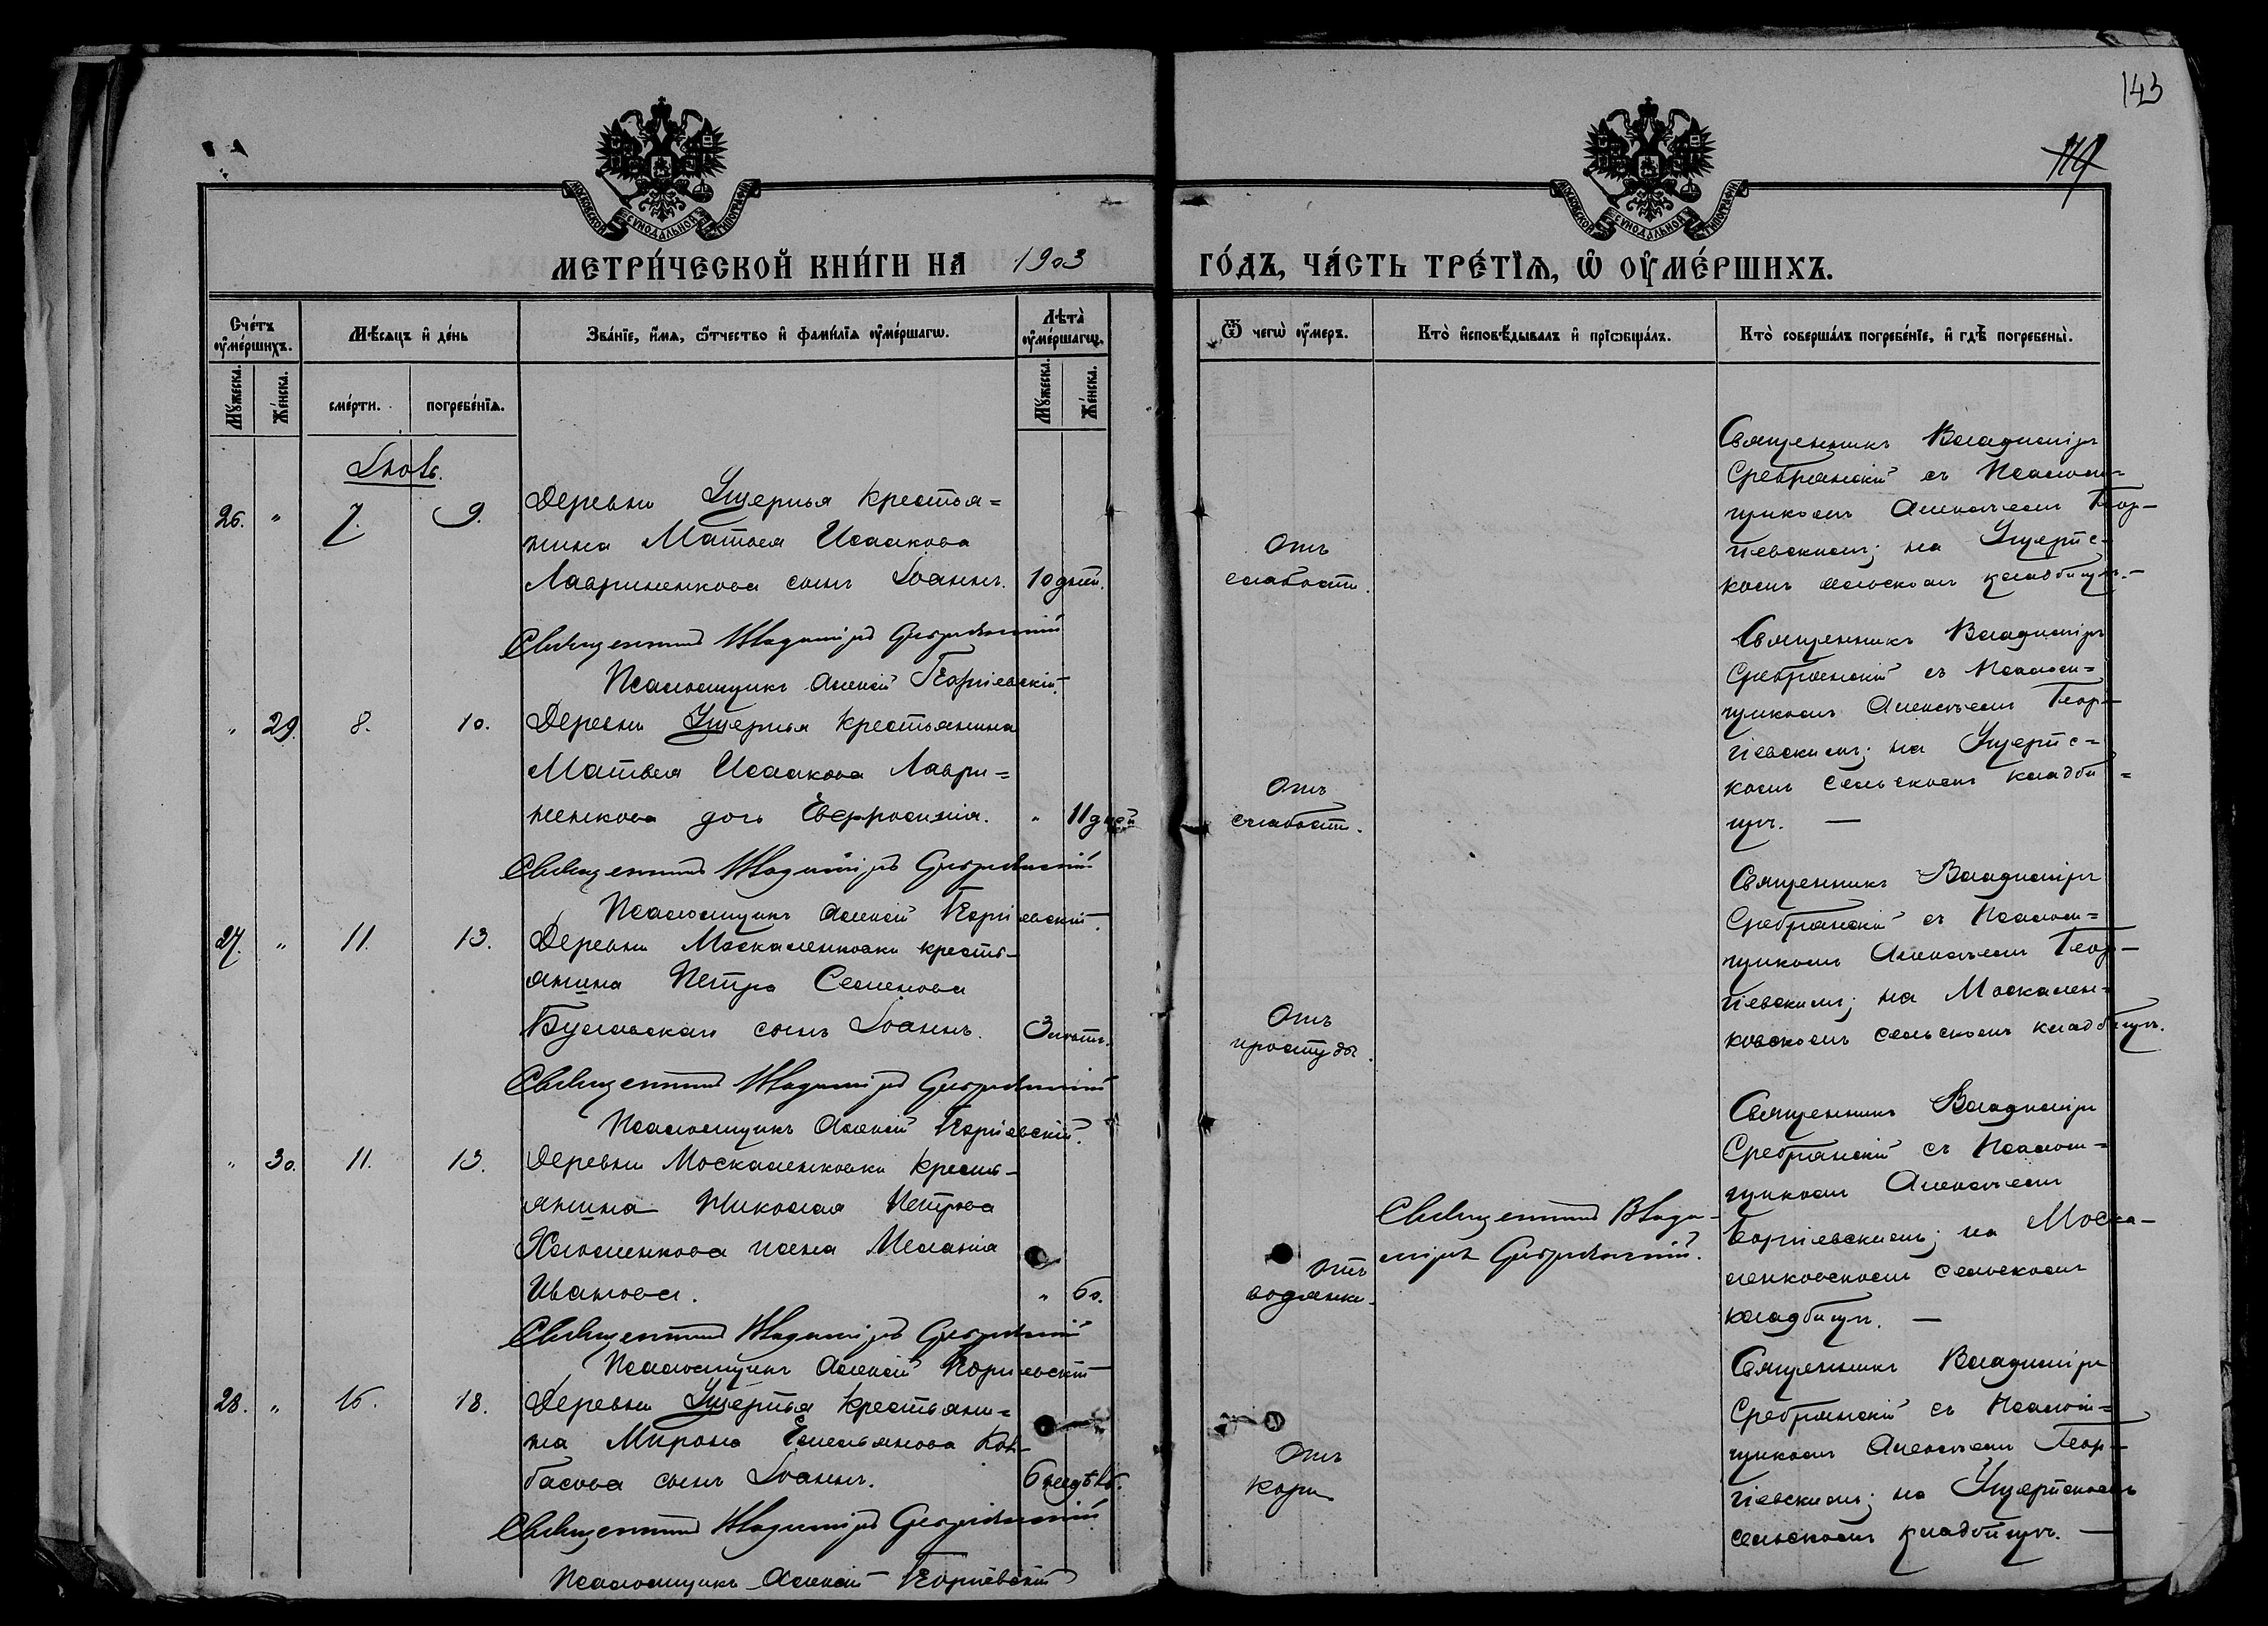 143
119
МОСКОВСКОЙ СѴНОДАЛЬНОЙ ТИПОГРАФІИ
МОСКОВСКОЙ СѴНОДАЛЬНОЙ ТИПОГРАФІИ
МЕТРИ́ЧЕСКОЙ КНИ́ГИ НА 1903
ГО́ДЪ, ЧА́СТЬ ТРЕ́ТЇѦ, Ѡ҆ ОУ҆МЕ́РШИХЪ.
Сче́тъ оу҆ме́ршихъ.
Мѣ́сяцъ и҆ де́нь
Зва́нїе, и҆́мѧ, ѻ҆́тчество и҆ фами́лїѧ оу҆ме́ршагѡ.
Лѣ́та оу҆ме́ршагѡ.
Мꙋ́жеска.
Же́нска.
сме́рти.
погребе́нїѧ.
Мꙋ́жеска.
Же́нска.
Ѿ чегѡ̀ оу҆́меръ.
Кто̀ и҆сповѣ́дывалъ и҆ прїѡбща́лъ.
Кто̀ соверша́лъ погребе́нїе, и҆ гдѣ̀ погребены̀.
Іюль.
26. " 7. 9.
Деревни Ущерпья крестья=
нина Матвея Исаакова
Лавриненкова сынъ Іоаннъ. 10 дней.
Отъ
слабости.
Священникъ Владиміръ
Сребрянскій съ Псалом=
щикомъ Алексѣемъ Геор-
гіевскимъ; на Ущерпс-
комъ сельскомъ кладбищѣ.-
Священникъ Владиміръ Сребрянскій
Псаломщикъ Алексій Георгіевскій.
" 29. 8. 10.
Деревни Ущерпья крестьянина
Матвея Исаакова Лаври=
ненкова дочь Евфросинія. " 11 дней
Отъ
слабости.
Священникъ Владиміръ
Сребрянскій съ Псалом=
щикомъ Алексѣемъ Геор-
гіевскимъ; на Ущерпс=
комъ сельскомъ кладби=
щѣ. —
Священникъ Владиміръ Сребрянскій
Псаломщикъ Алексій Георгіевскій.
27. " 11. 13.
Деревни Москаленковки кресть-
янина Петра Семенова
сынъ Іоаннъ. 3 лѣтъ.
Отъ
простуды.
Священникъ Владиміръ
Сребрянскій съ Псалом=
щикомъ Алексѣемъ Геор-
гіевскимъ; на Москален=
ковскомъ сельскомъ кладбищѣ.
Священникъ Владиміръ Сребрянскій
Псаломщикъ Алексій Георгіевскій.
" 30. 11. 13.
Деревни Москаленковки кресть-
янина Николая Петрова
жена Меланія
Иванова. " 60.
Отъ
водянки.
Священникъ Влади-
міръ Сребрянскій.
Священникъ Владиміръ
Сребрянскій съ Псалом=
щикомъ Алексѣемъ
Георгіевскимъ; на Моска-
ленковскомъ сельскомъ
кладбищѣ. —
Священникъ Владиміръ Сребрянскій
Псаломщикъ Алексій Георгіевскій
28. " 16. 18.
Деревни Ущерпья крестьяни=
на Мирона Емельянова Кол-
басова сынъ Іоаннъ. 6 недѣль.
Отъ
кори.
Священникъ Владиміръ
Сребрянскій съ Псалом=
щикомъ Алексѣемъ Геор-
гіевскимъ; на Ущерпскомъ
сельскомъ кладбищѣ. —
Священникъ Владиміръ Сребрянскій
Псаломщикъ Алексій Георгіевскій